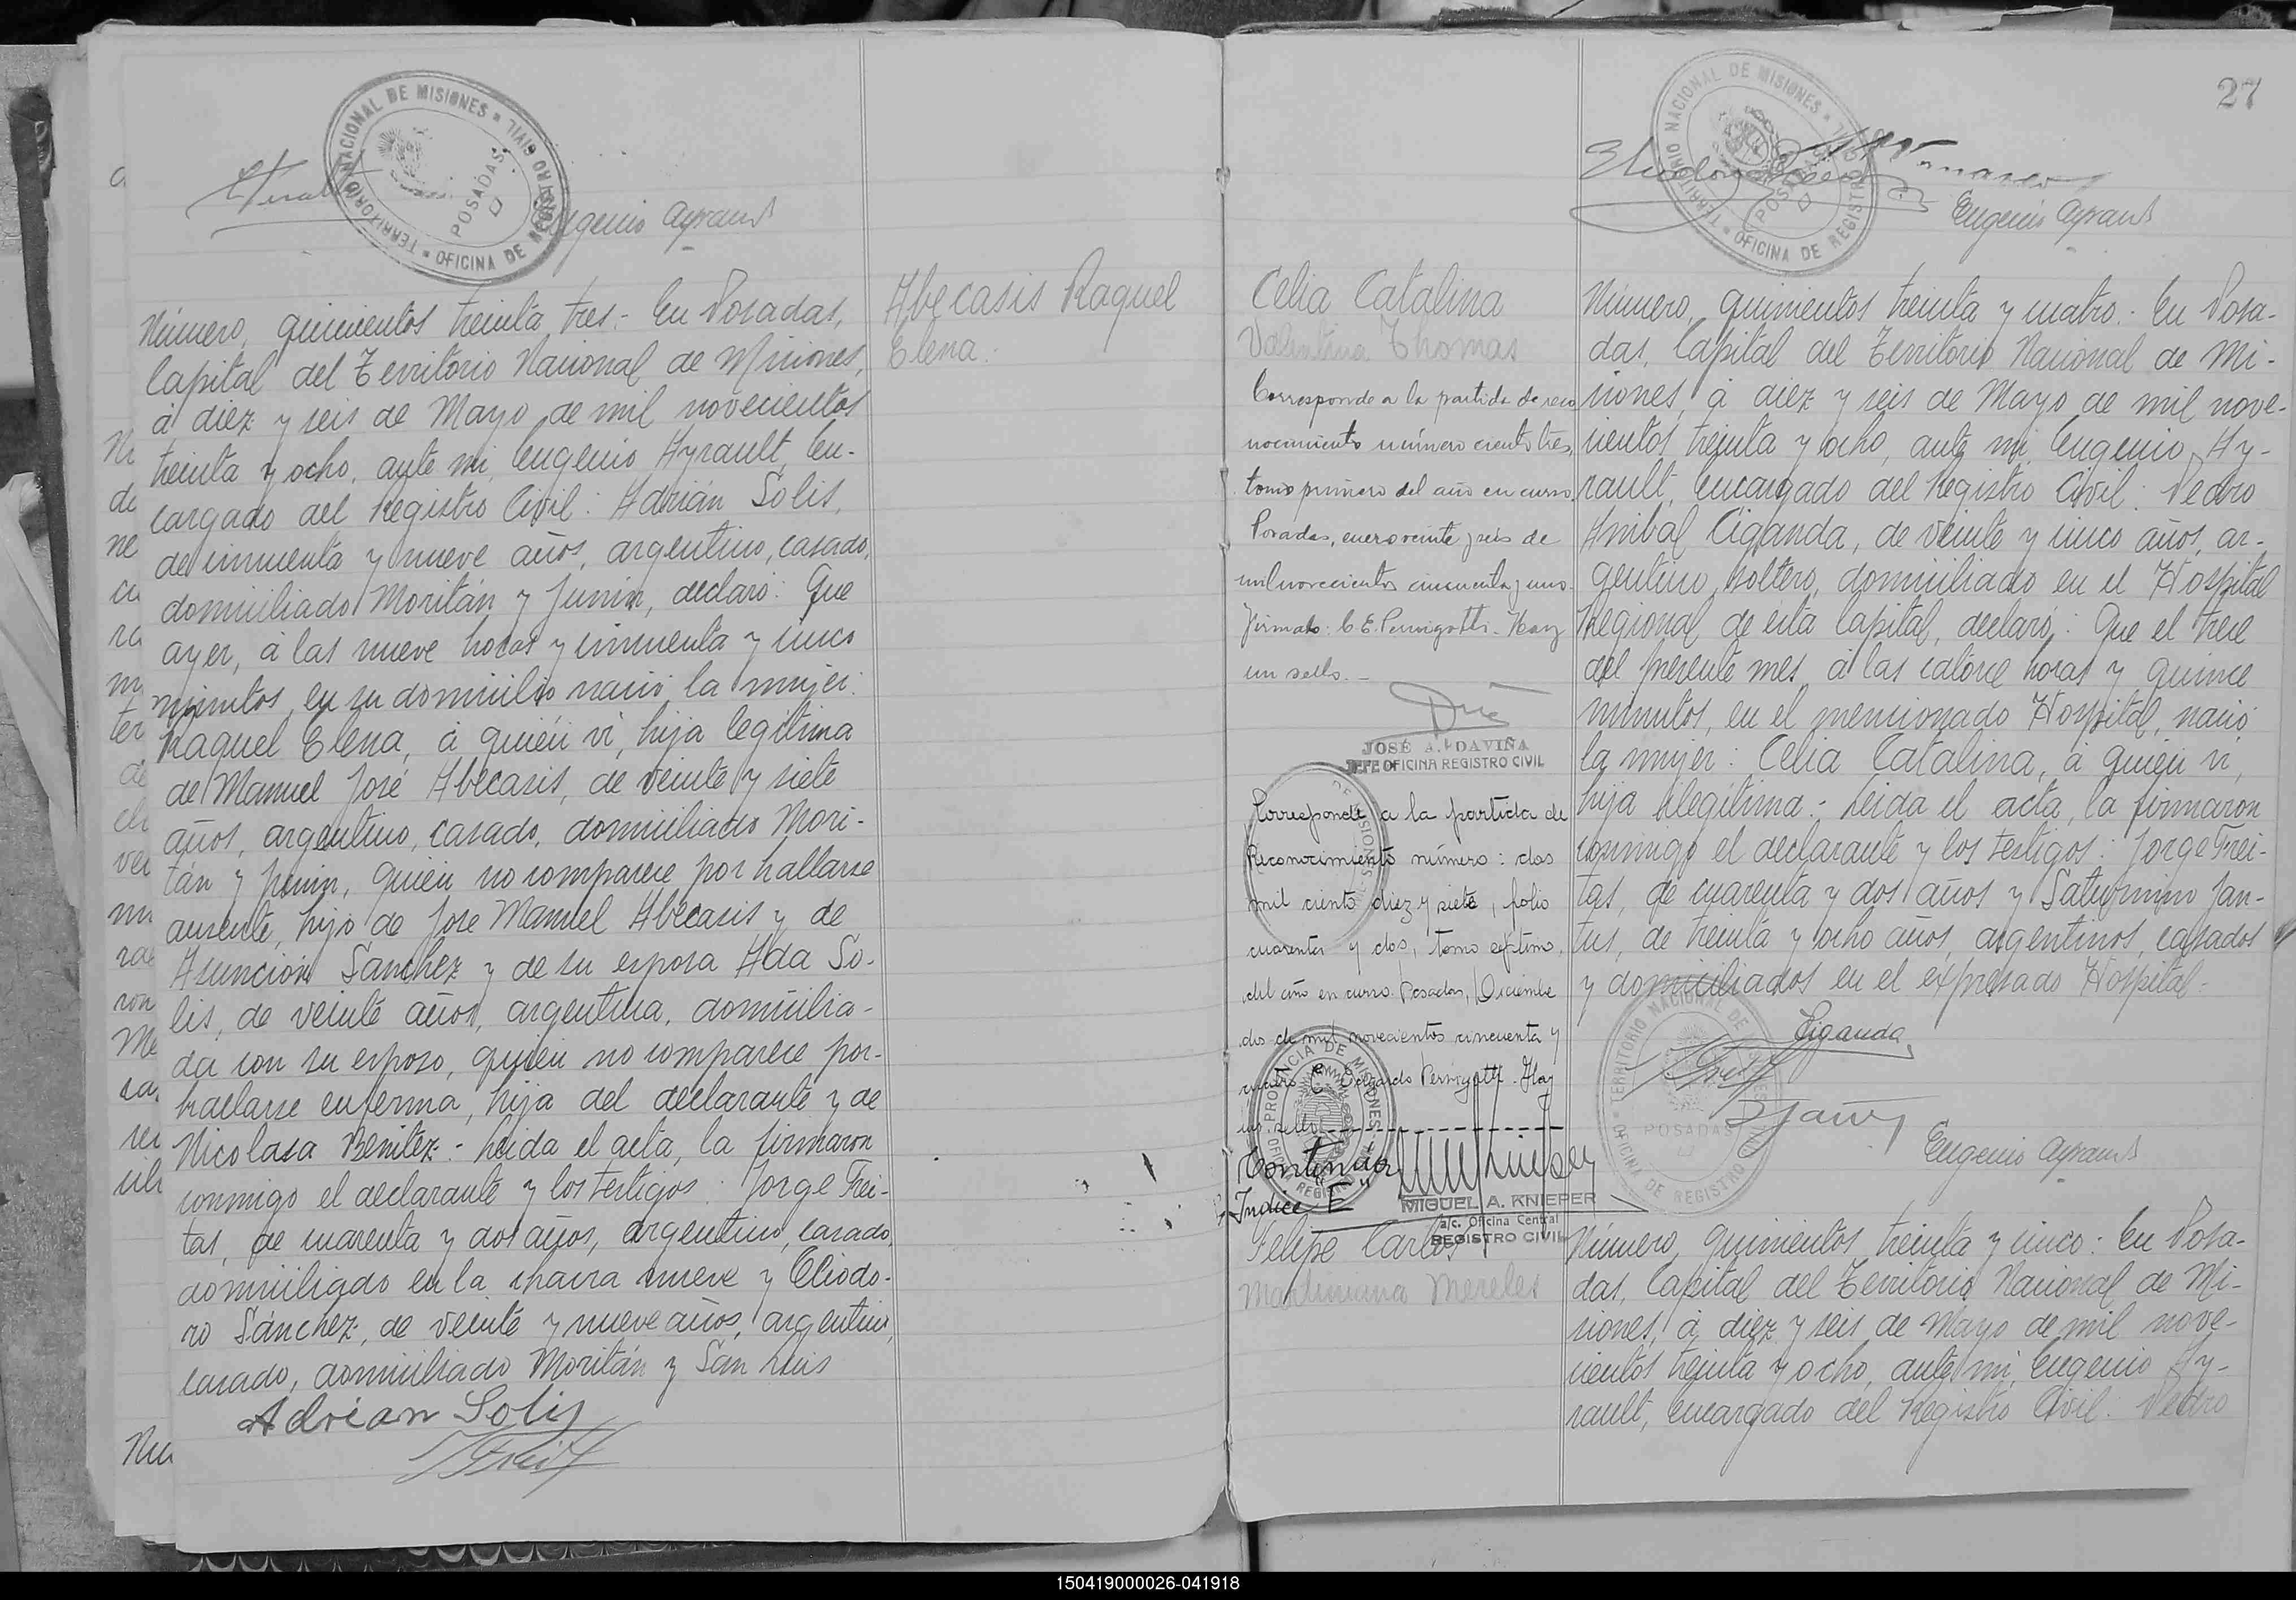 TERRITORIO NACIONAL DE MISIONES
OFICINA DE REGISTRO CIVIL
POSADAS
Eugenio Ayrault
Número, quinientos treinta tres.- En Posadas,
Capital del Territorio Nacional de Misiones,
á diez y seis de Mayo de mil novecientos
treinta y ocho, ante mi, Eugenio Ayrault, En-
cargado del Registro Civil: Adrián Solis,
de cincuenta y nueve años, argentino, casado,
domiciliado Moritán y Junín, declaró: Que
ayer, á las nueve horas y cincuenta y cinco
minutos, en su domicilio nació la mujer:
Raquel Elena, á quién vi, hija legítima
de Manuel José Abecasis, de veinte y siete
años, argentino, casado, domiciliado Mori-
tán y Junin, quién no comparece por hallarse
ausente, hijo de Jose Manuel Abecasis y de
Asunción Sánchez y de su esposa Ada So-
lis, de veinte años, argentina, domicilia-
da con su esposo, quién no comparece por-
hallarse enferma, hija del declarante y de
Nicolasa Benitez.- Leida el acta, la firmaron
conmigo el declarante y los testigos: Jorge Frei-
tas, de cuarenta y dos años, argentino, casado,
domiciliado en la chacra nueve y Eliodo-
ro Sánchez, de veinte y nueve años, argentino,
casado, domiciliado Moritán y San Luis
Adrian Solis
Abecasis Raquel
Elena.
27
TERRITORIO NACIONAL DE MISIONES
OFICINA DE REGISTRO CIVIL
POSADAS
Eugenio Ayrault
Celia Catalina
Valentina Thomas
Corresponde a la partida de reco
nocimiento número ciento tres,
tomo primero del año en curso.
Posadas, enero veinte y seis de
mil novecientos cincuenta y uno.
Firmado: C. E. Pernigotti - Hay
un sello.-
JOSÉ A. DAVIÑA
JEFE OFICINA REGISTRO CIVIL
Corresponde a la partida de
Reconocimiento número: dos
mil ciento diez y siete, folio
cuarenta y dos, tomo septimo,
del año en curso. Posadas, Diciembre
dos de mil novecientos cincuenta y
Pernigotti - Hay
un sello
PROVINCIA DE MISIONES
Continúa
Indice "E"
MIGUEL A. KNIEPER
a/c. Oficina Central
REGISTRO CIVIL
Número, quinientos treinta y cuatro.- En Posa-
das, Capital del Territorio Nacional de Mi-
siones, á diez y seis de Mayo de mil nove-
cientos treinta y ocho, ante mi, Eugenio Ay-
rault, Encargado del Registro Civil: Pedro
Anibal Ciganda, de veinte y cinco años, ar-
gentino, soltero, domiciliado en el Hospital
Regional de esta Capital, declaró: Que el trece
del presente mes, á las catorce horas y quince
minutos, en el mencionado Hospital, nació
la mujer: Celia Catalina, á quién vi,
hija ilegítima.- Leida el acta, la firmaron
conmigo el declarante y los testigos: Jorge Frei-
tas, de cuarenta y dos años y Saturnino Jan-
tus, de treinta y ocho años, argentinos, casados
y domiciliados en el expresado Hospital.-
Ciganda
TERRITORIO NACIONAL DE MISIONES
OFICINA DE REGISTRO
POSADAS
Eugenio Ayrault
Felipe Carlos
Martiniana Mereles
Número, quinientos treinta y cinco: En Posa-
das, Capital del Territorio Nacional de Mi-
siones, á diez y seis de Mayo de mil nove-
cientos treinta y ocho, ante mi, Eugenio Ay-
rault, Encargado del Registro Civil: Pedro
150419000026-041918